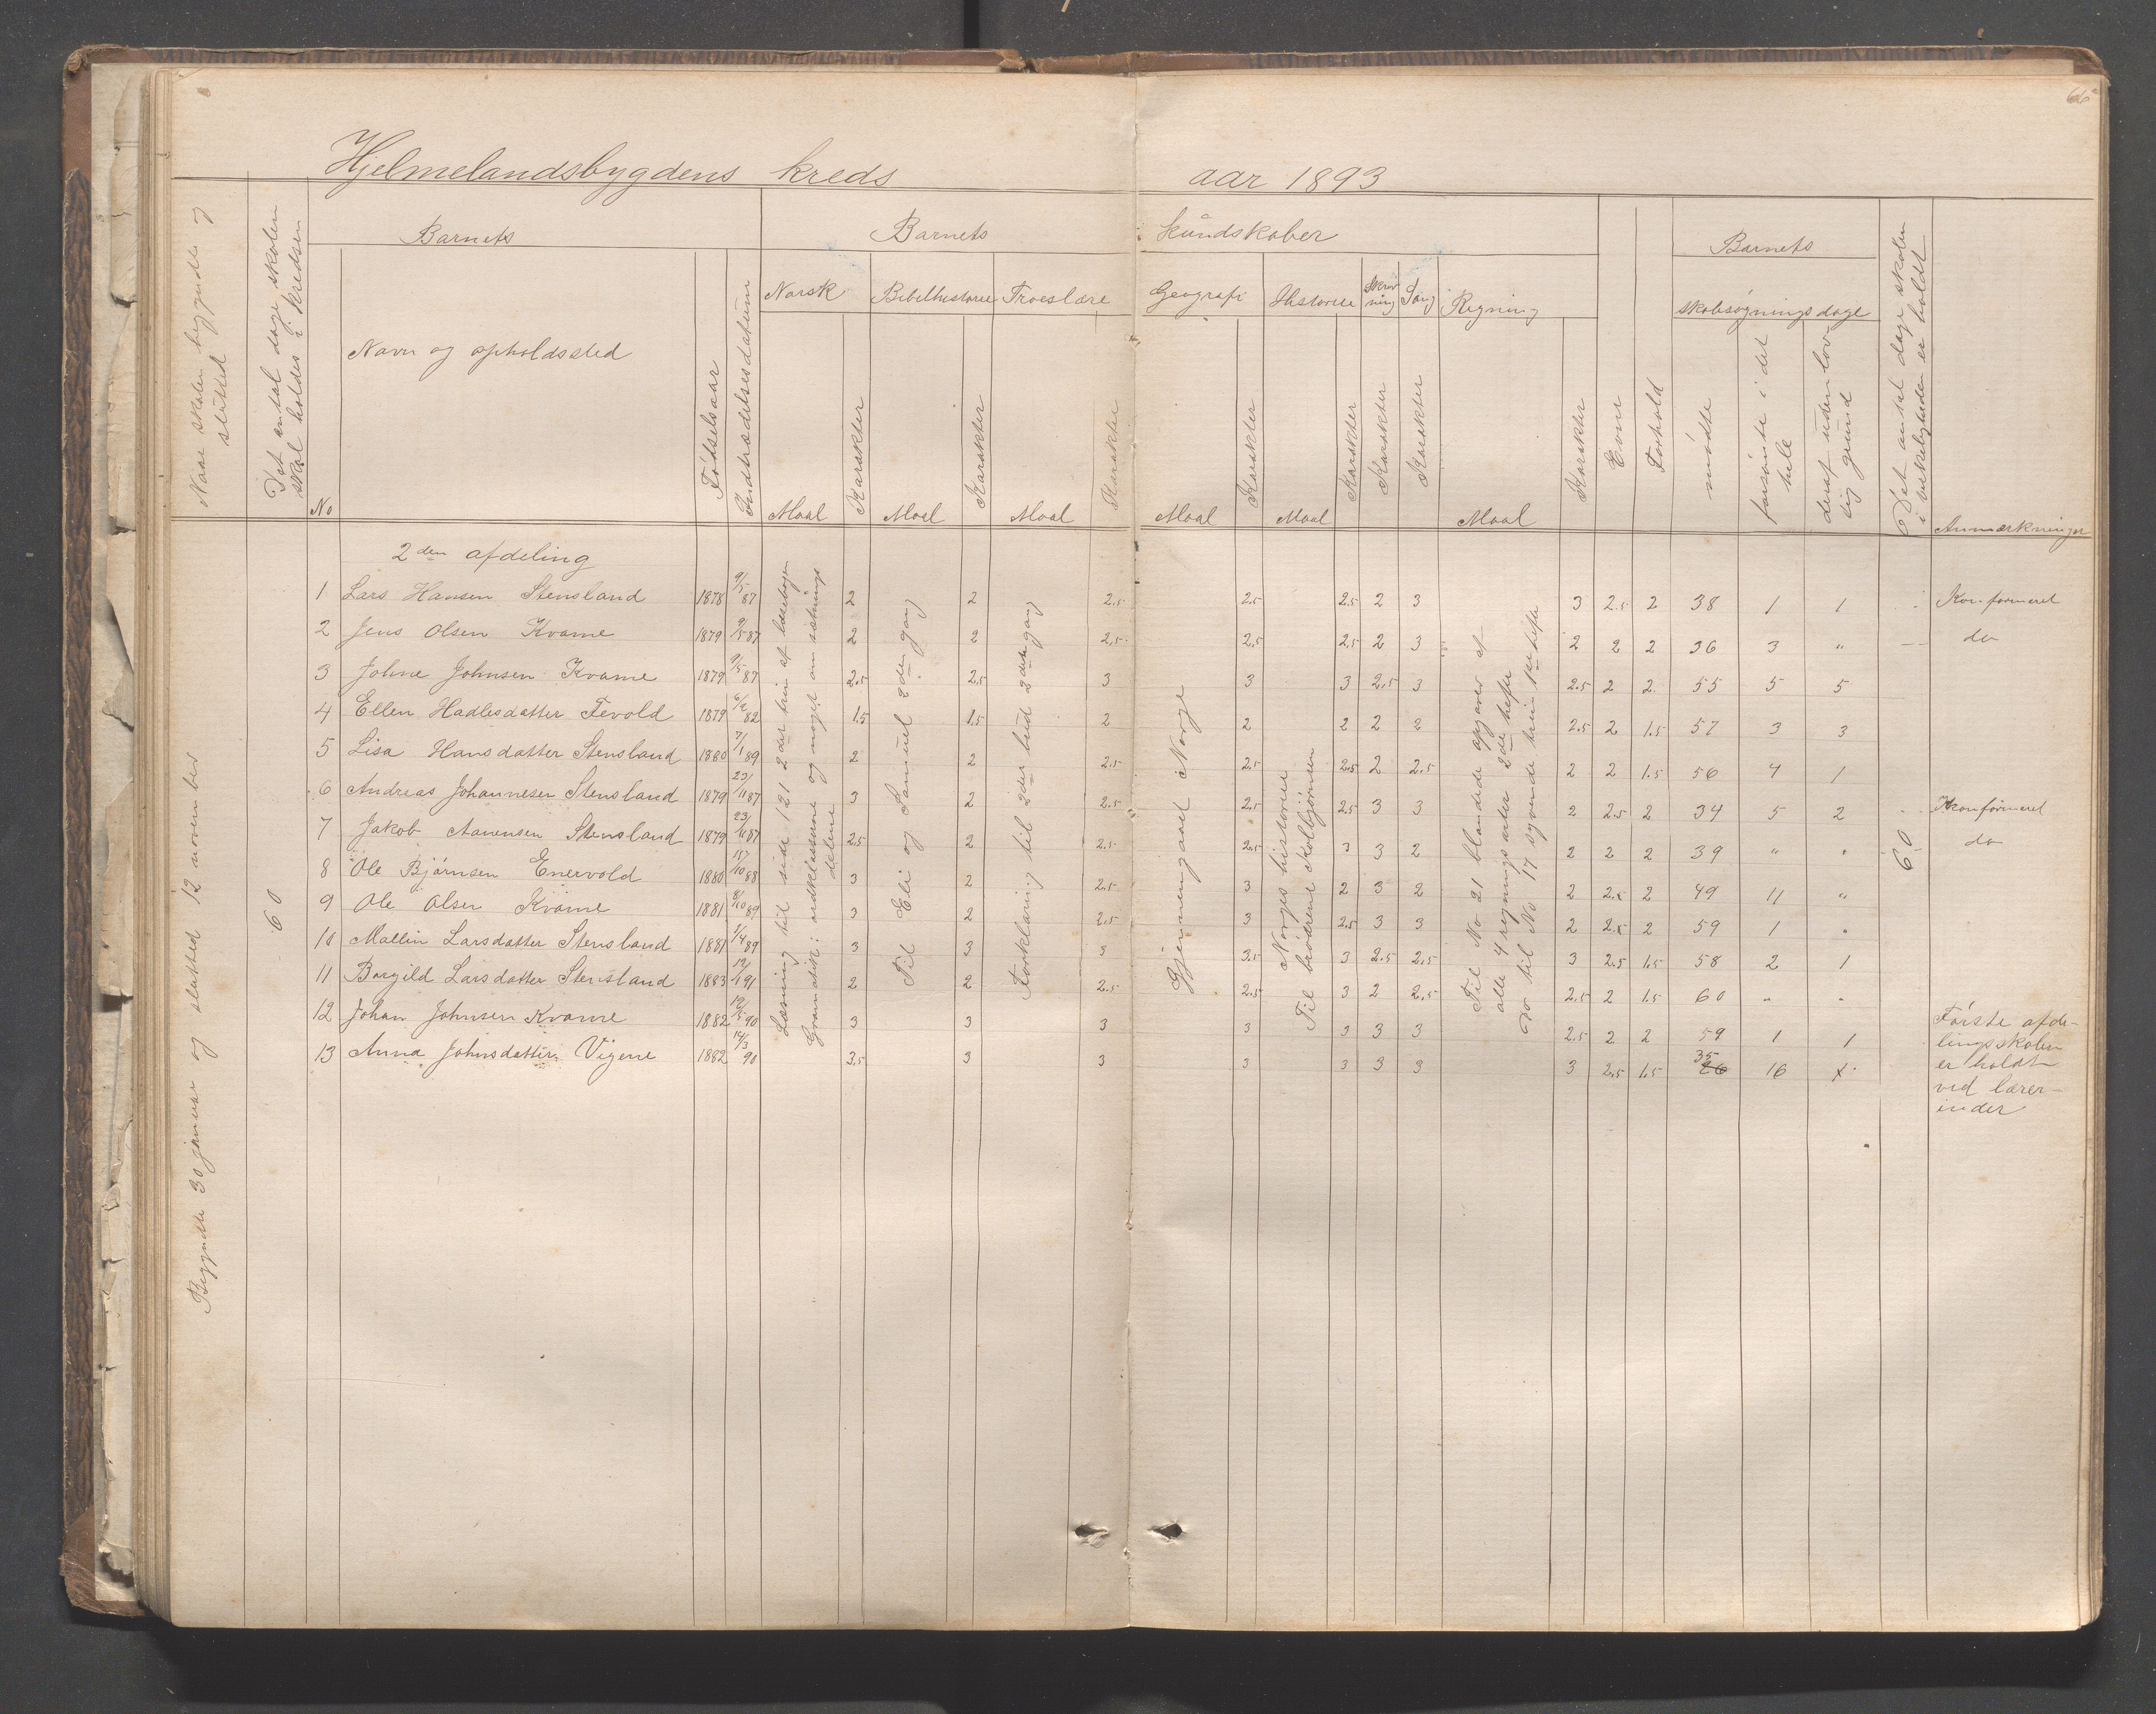 66
Hjelmelandsbygdens kreds aar 1893
Naar skolen begyndte og slutted
Det antal dage skolen skal holdes i kredsen
Barnets
Barnets kundskaber
Barnets
No
Navn og opholdssted
Fødselsaar
Indtrædelsesdatum
Norsk Bibelhistorie Troeslære Geografi Historie Skrivning Sang Regning
Maal Karakter Maal Karakter Maal Karakter Maal Karakter Maal Karakter Karakter Karakter Maal Karakter
Evne
Forhold
skolesøgningsdage
mødte
forsømte i det hele
deraf uden lovlig grund
Det antal dage skolen i virkeligheden er holdt
Anmærkninger
Begyndte 30 januar og slutted 12 november
60
2den afdeling
1 Lars Hansen Stensland 1878 9/5 87 2 2 2.5 2.5 2.5 2 3 3 2.5 2 38 1 1 Konfirmeret
2 Jens Olsen Kvame 1879 9/5 87 2 2 2.5 2.5 2.5 2 3 2 2 2 36 3 " do
3 Johne Johnsen Kvame 1879 9/5 87 2.5 2.5 3 3 3 2.5 3 2.5 2 2 55 5 5
4 Ellen Hadlesdatter Tevold 1879 82 1.5 1.5 2 2 2 2 2 2.5 2 1.5 57 3 3
5 Lisa Hansdatter Stensland 1880 7/1 89 2 2 2.5 2.5 2.5 2 2.5 2 2 1.5 56 4 1
6 Andreas Johannesen Stensland 1879 23/11 87 3 2 2.5 2.5 2.5 3 3 2 2.5 2 34 5 2 Konfirmeret
7 Jakob Aanensen Stensland 1879 23/11 87 2.5 2 2.5 2.5 3 3 2 2 2 2 39 " " do
8 Ole Bjørnsen Enervold 1880 15/10 88 3 2 2.5 3 2 3 2 2 2.5 2 49 11 "
9 Ole Olsen Kvame 1881 8/10 89 3 2 2.5 3 2.5 3 3 2 2.5 2 59 1 "
10 Mallin Larsdatter Stensland 1881 1/4 89 3 3 3 3.5 3 2.5 2.5 3 2.5 1.5 58 2 1
11 Borgild Larsdatter Stensland 1883 12/1 91 2 2 2.5 2.5 3 2 2.5 2.5 2 1.5 60 " "
12 Johan Johnsen Kvame 1882 12/5 90 3 3 3 3 3 3 3 2.5 2 2 59 1 1
13 Anna Johnsdatter Vigene 1882 14/3 90 3.5 3 3 3 3 3 3 3 2.5 1.5 35 26 16 x
Læsning til side 121 2det trin af læsebogen
Gramatik: ordklasserne og noget om sætnings
delene
Til Eli og Samuel 2den gang
Forklaring til 2det bud 2den gang
Gjennemgaaet Norge
Norges historie
Til brødrene Kolbjørnsen
Til No 21 blandede opgaver af
alle 4 regningsarter 2de hefte
do til No 17 syvende trin 1ste hefte
60
Første afde-
lings skolen
er holdt
ved lærer-
inder